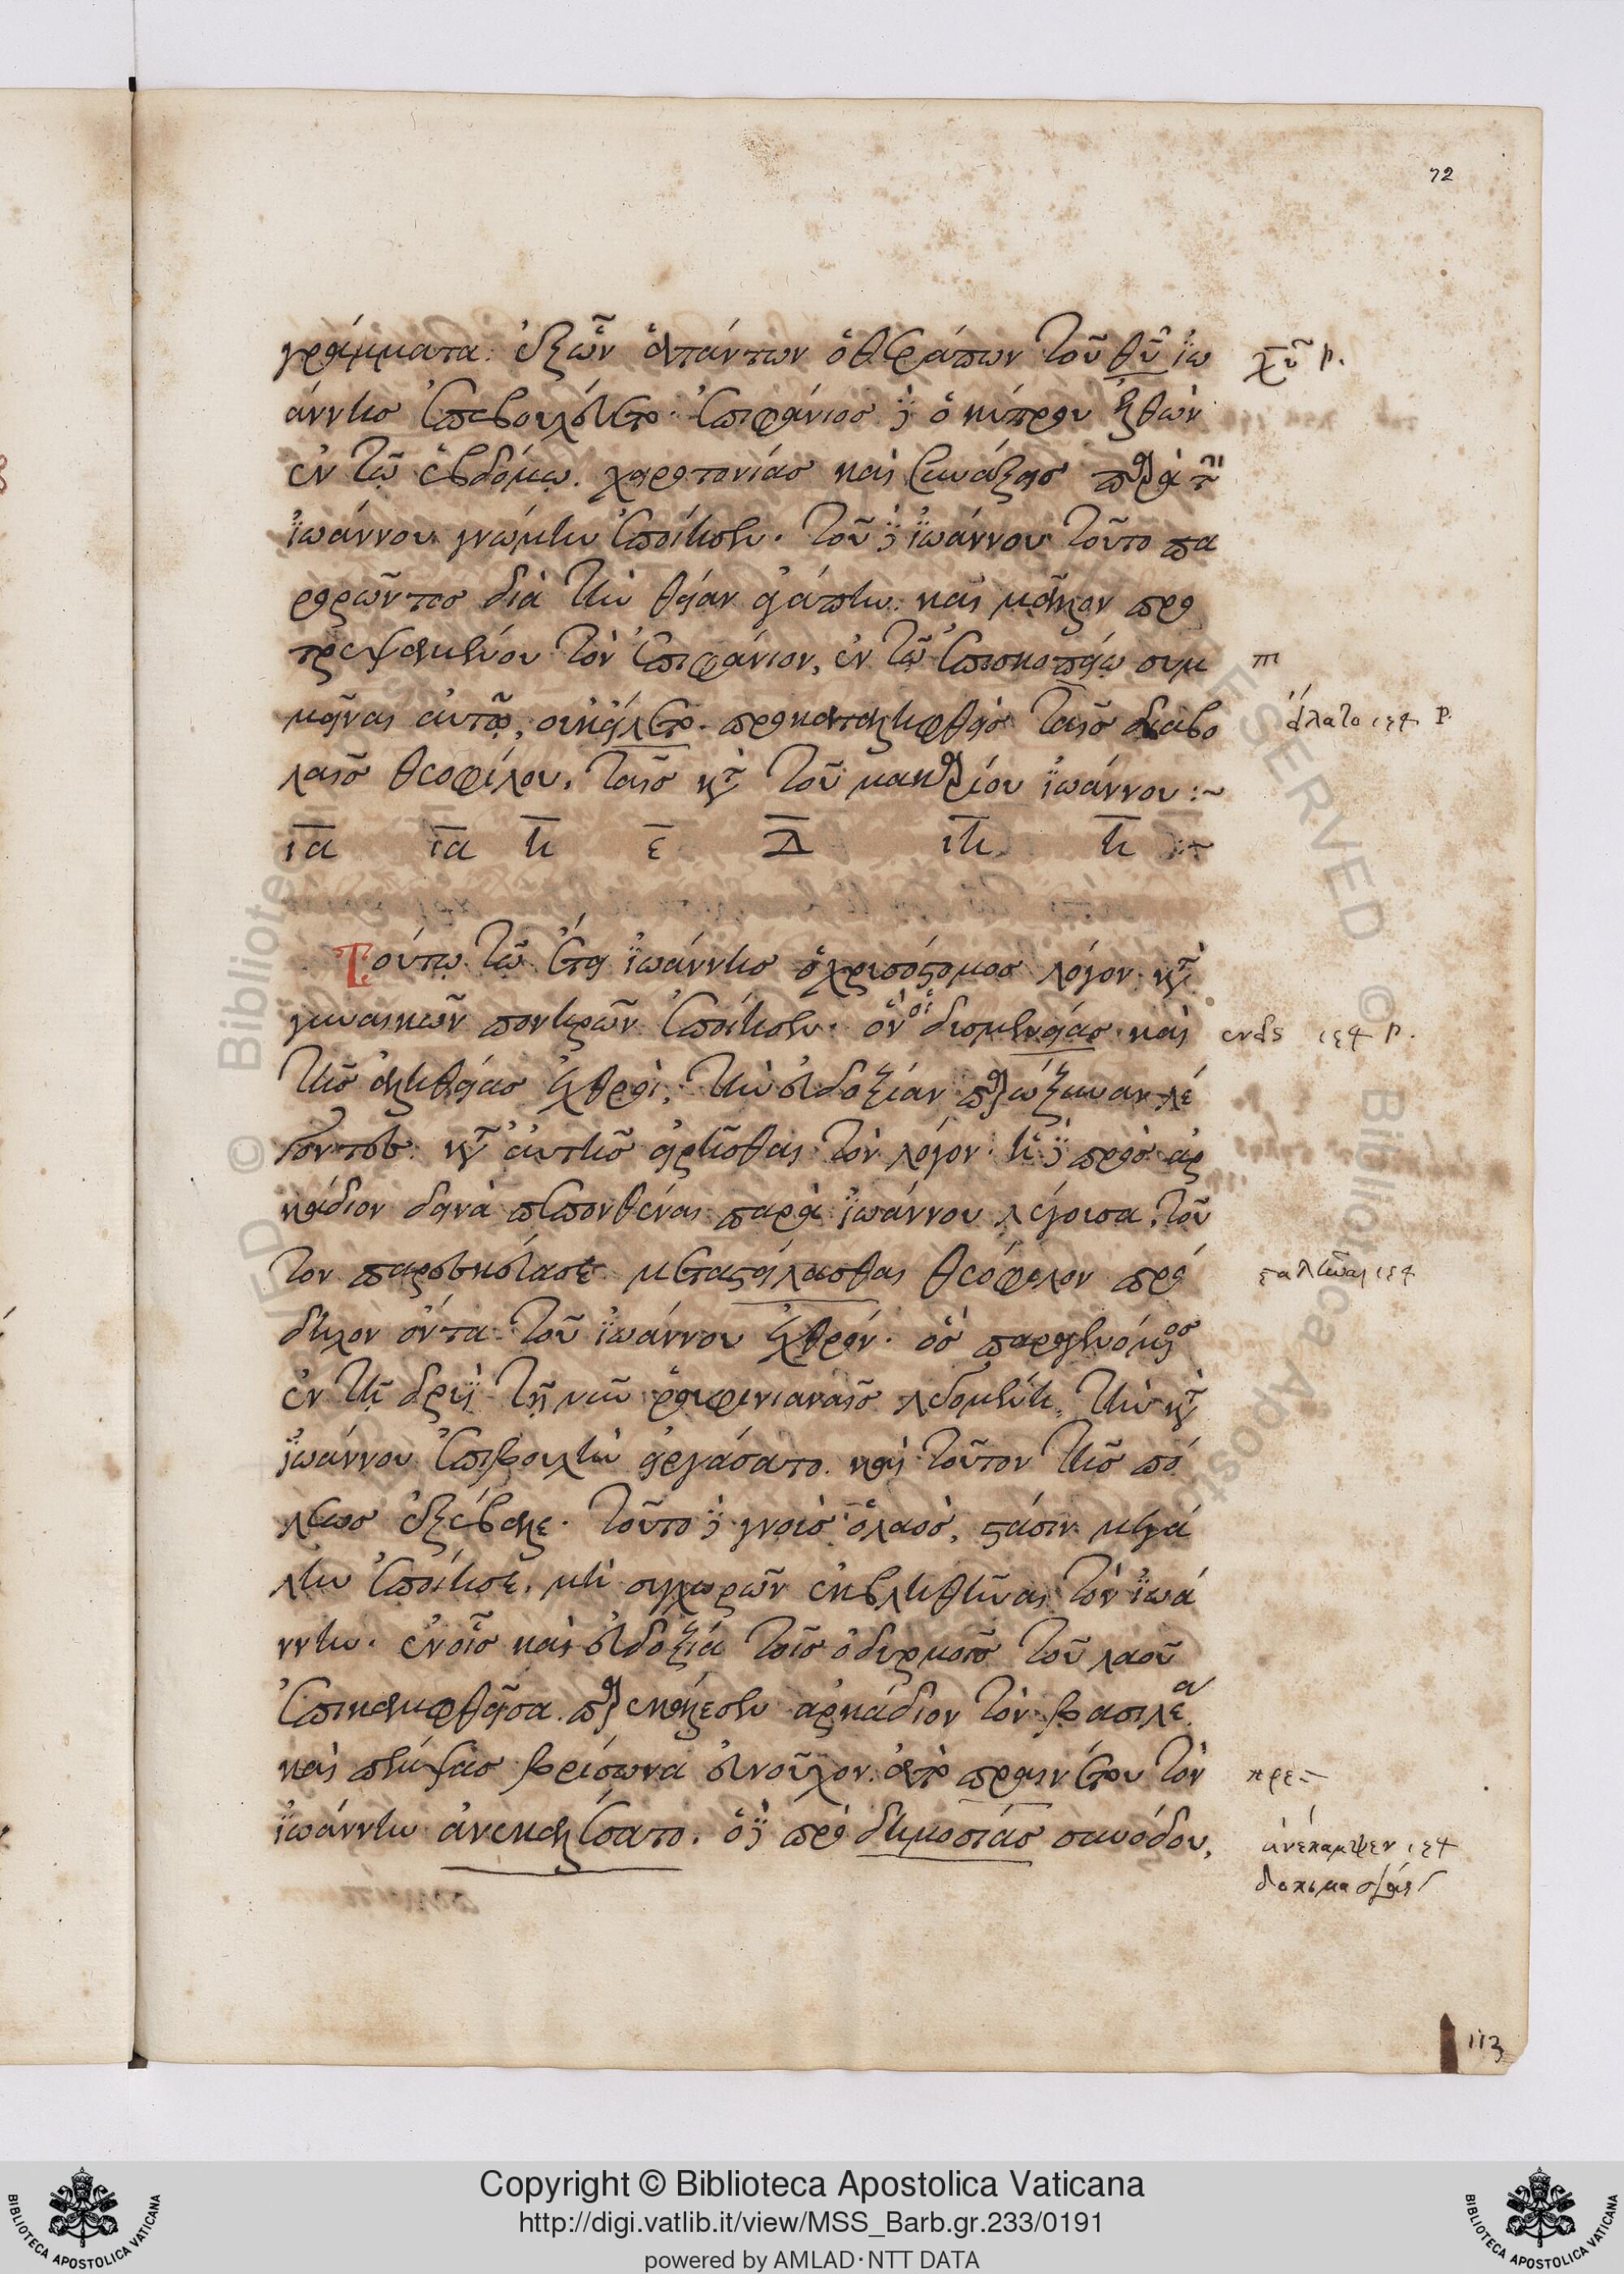 72
γράμματα. ἐξ ὧν ἁπάντων ὁ θεράπων τοῦ θῦ ἰω
χῦ P.
άννης ἐπεβουλεύετο. ἐπιφάνιος δὲ ὁ κύπρου ἐλθὼν
ἐν τῷ ἑβδόμῳ. χειροτονίας καὶ συνάξεις παρὰ τὴν
ἰωάννου γνώμην ἐποίησεν. τοῦ δὲ ἰωάννου τοῦτο πα
ρορῶντος διὰ τὴν θείαν ἀγάπην. καὶ μᾶλλον προ
τρεψαμένου τὸν ἐπιφάνιον, ἐν τῷ ἐπισκοπείῳ συμ
μεῖναι αὐτῷ, οὐκ εἵλετο. προκαταληφθεὶς ταῖς διαβο
λαῖς θεοφίλου, ταῖς κατὰ τοῦ μακαρίου ἰωάννου :~
ια ια η ε Δ ιη η :~
Τούτῳ τῷ ἔτει ἰωάννης ὁ χρυσόστομος λόγον κατὰ
γυναικῶν πονηρῶν ἐποίησεν. ὃν οἱ δυσμενείας καὶ
τῆς ἀληθείας ἐχθροὶ, τὴν εὐδοξίαν παρώξυναν λέ
γοντες. κατ' αὐτῆς εἰρῆσθαι τὸν λόγον. ἡ δὲ πρὸς ἀρ
κάδιον δεινὰ πεπονθέναι παρὰ ἰωάννου λέγουσα, τοῦ
τον παρεσκεύασε μεταστείλασθαι θεόφιλον πρό
δηλον ὄντα τοῦ ἰωάννου ἐχθρόν. ὃς παραγενόμενος
ἐν τῇ δρυῒ τῇ νῦν ῥουφινιαναῖς λεγομένῃ, τὴν κατὰ
ἰωάννου ἐπιβουλὴν εἰργάσατο. καὶ τοῦτον τῆς πό
λεως ἐξέβαλε. τοῦτο δὲ γνοὺς ὁ λαὸς, στάσιν μεγά
λην ἐποίησε, μὴ συγχωρῶν ἐκβληθῆναι τὸν ἰωά
ννην. ἐν οἷς καὶ εὐδοξία τοῖς ὀδυρμοῖς τοῦ λαοῦ
ἐπικαμφθεῖσα. παρεκάλεσεν ἀρκάδιον τὸν βασιλέα
καὶ πέμψας βρίσωνα εὐνοῦχον. ἀπὸ πραινέτου τὸν
πρε-
ἰωάννην ἀνεκαλέσατο. ὁ δὲ πρὸ δημοσίας συνόδου,
ἀνέκαμψεν
113
Copyright © Biblioteca Apostolica Vaticana
http://digi.vatlib.it/view/MSS_Barb.gr.233/0191
powered by AMLAD·NTT DATA
BIBLIOTECA APOSTOLICA VATICANA
BIBLIOTECA APOSTOLICA VATICANA